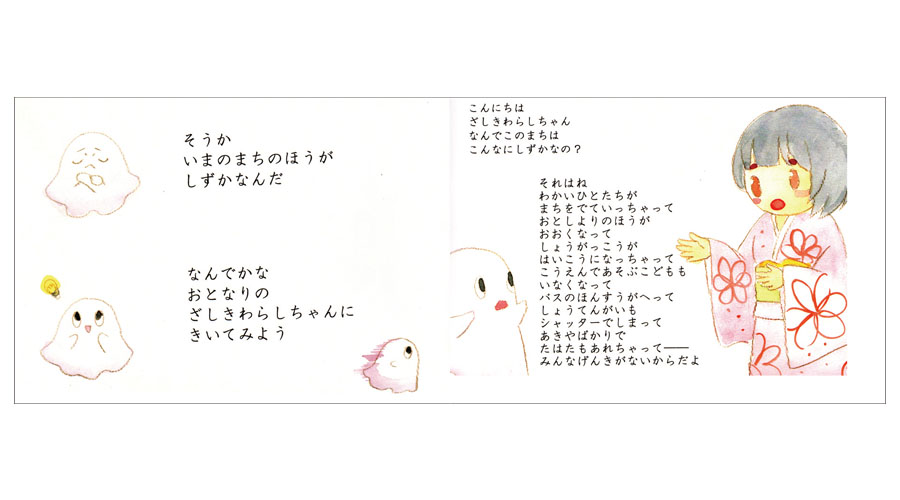 そうか
いまのまちのほうが
しずかなんだ
なんでかな
おとなりの
ざしきわらしちゃんに
きいてみよう
こんにちは
ざしきわらしちゃん
なんでこのまちは
こんなにしずかなの?
それはね
わかいひとたちが
まちをでていっちゃって
おとしよりのほうが
おおくなって
しょうがっこうが
はいこうになっちゃって
こうえんであそぶこどもも
いなくなって
バスのほんすうがへって
しょうてんがいも
シャッターでしまって
あきやばかりで
たはたもあれちゃって――
みんなげんきがないからだよ